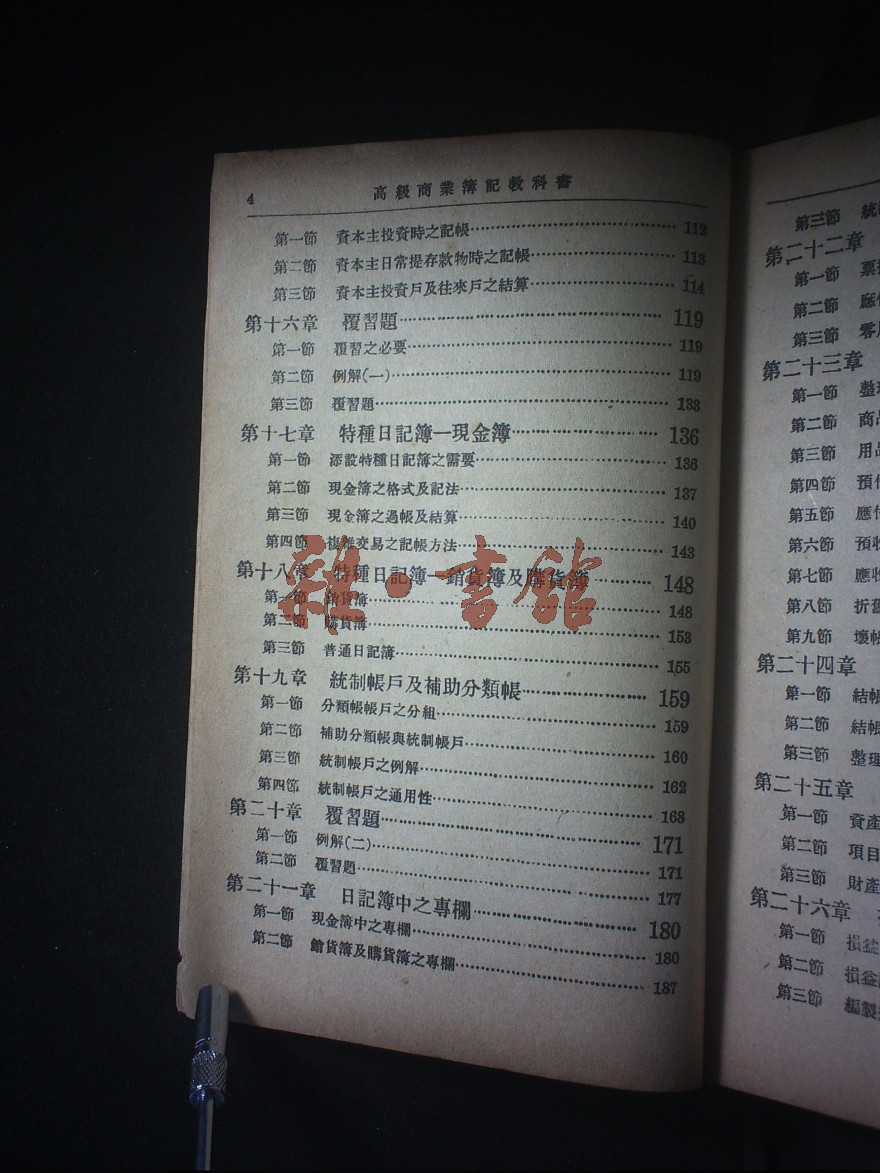 4
高級商業簿記教科書
第一節 資本主投資時之記帳 112
第二節 資本主日常提存款物時之記帳 113
第三節 資本主投資戶及往來戶之結算 114
第十六章 覆習題 119
第一節 覆習之必要 119
第二節 例解(一) 119
第三節 覆習題 133
第十七章 特種日記簿—現金簿 136
第一節 添設特種日記簿之需要 136
第二節 現金簿之格式及記法 137
第三節 現金簿之過帳及結算 140
第四節 複雜交易之記帳方法 143
第十八章 特種日記簿—銷貨簿及購貨簿 148
第一節 銷貨簿 148
第二節 購貨簿 153
第三節 普通日記簿 155
第十九章 統制帳戶及補助分類帳 159
第一節 分類帳帳戶之分組 159
第二節 補助分類帳與統制帳戶 160
第三節 統制帳戶之例解 162
第四節 統制帳戶之通用性 168
第二十章 覆習題 171
第一節 例解(二) 171
第二節 覆習題 177
第二十一章 日記簿中之專欄 180
第一節 現金簿中之專欄 180
第二節 銷貨簿及購貨簿之專欄 187
雜·書館
第三節 統
第二十二章
第一節 票
第二節 應付
第三節 零用
第二十三章
第一節 整理
第二節 商品
第三節 用品
第四節 預付
第五節 應付
第六節 預收
第七節 應收
第八節 折舊
第九節 壞帳
第二十四章
第一節 結帳
第二節 結帳
第三節 整理
第二十五章
第一節 資產
第二節 項目
第三節 財產
第二十六章
第一節 損益
第二節 損益
第三節 編製